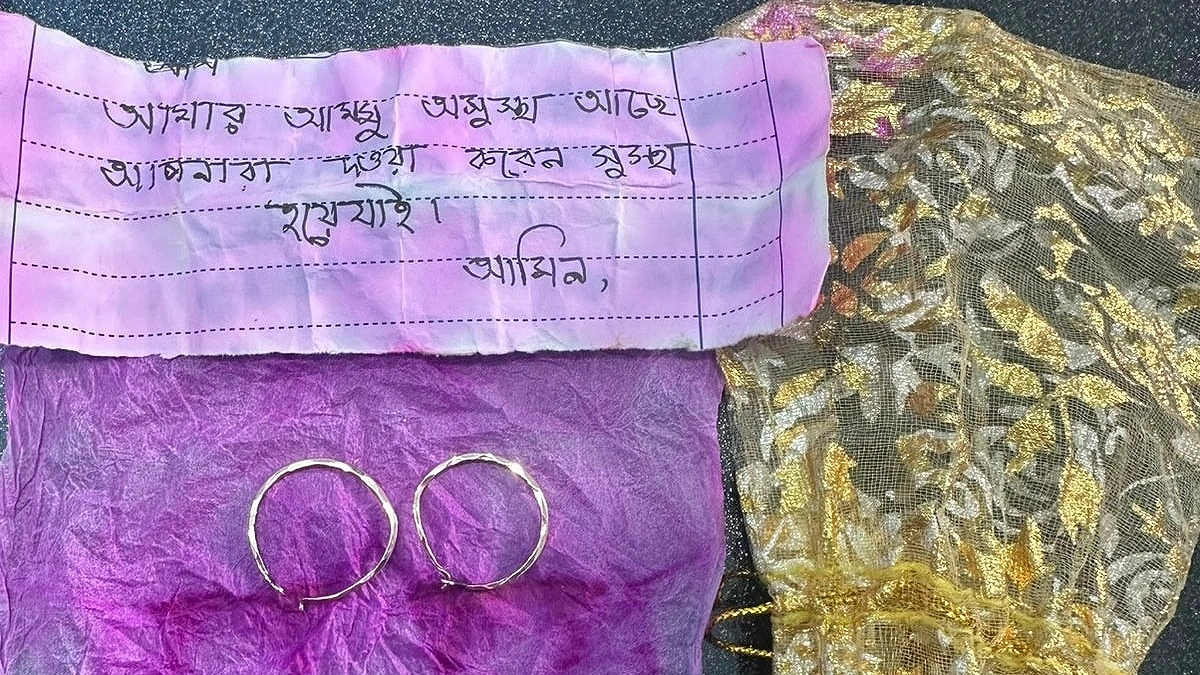 আমার আম্মু অসুস্থ্য আছে
আপনারা দওয়া করেন সুস্থ্য
হয়েযাই।
আমিন,